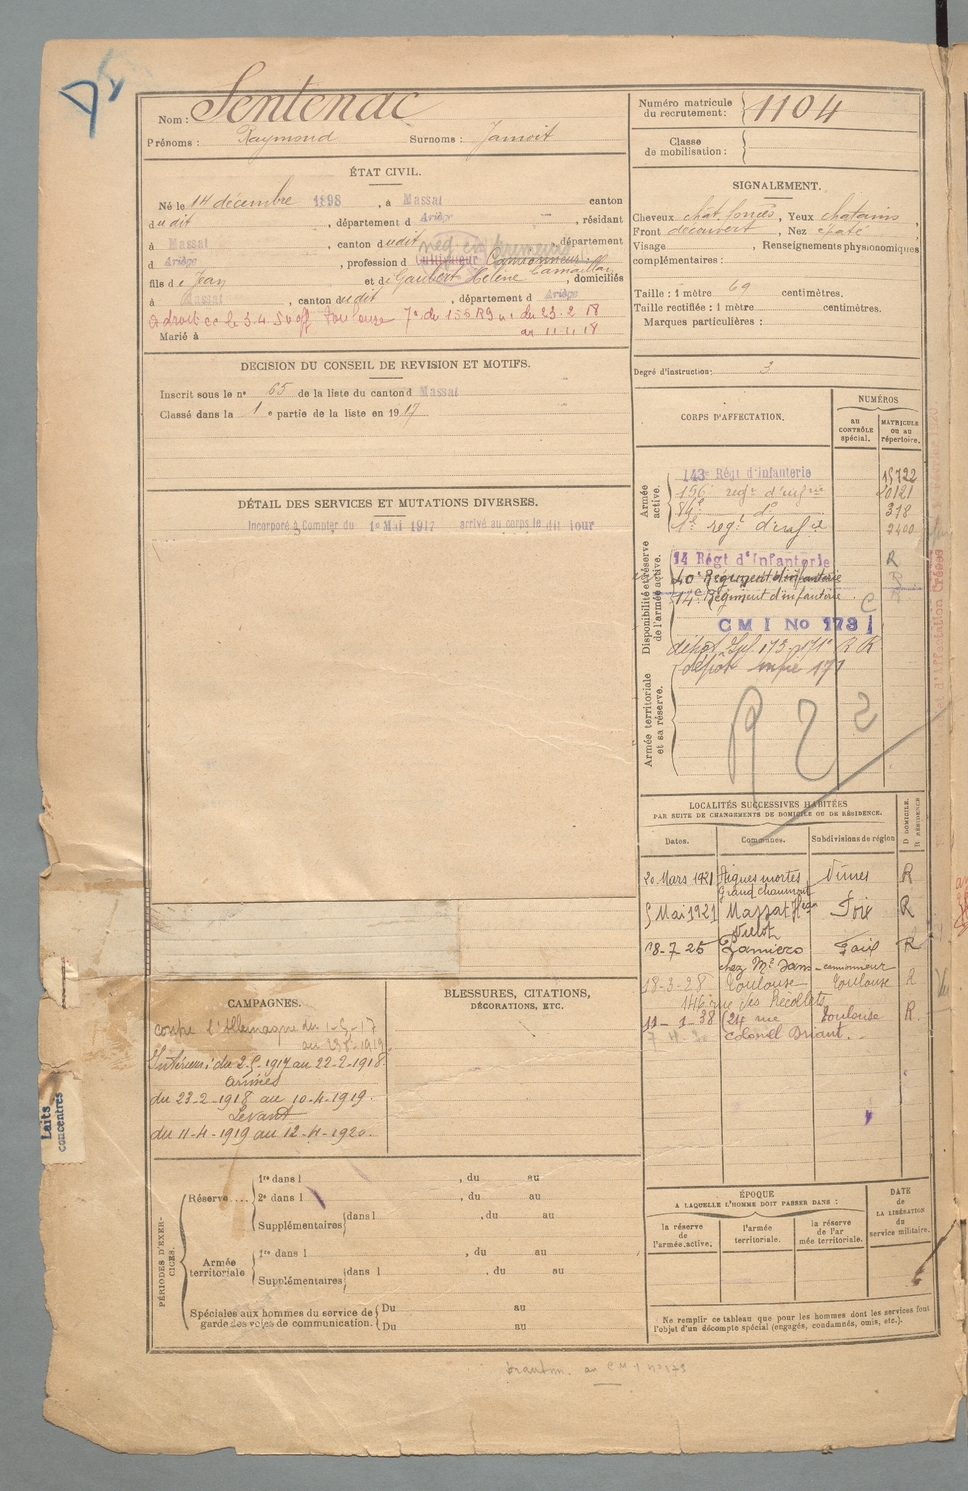 Nom : Sentenac
Prénoms : Raymond Surnoms : Jamoit
Numéro matricule du recrutement : 1104
Classe de mobilisation :
ÉTAT CIVIL.
Né le 14 décembre 1898, à Massat canton
dudit, département d Ariège, résidant
à Massat, canton dudit, département
d Ariège, profession d Cultivateur Camionneur
fils de Jean et de Gaubert Hélène, domiciliés
à Massat, canton dudit, département d Ariège
a droit cc le 3.4.50 off Toulouse 7e. du 156 RI du 23.2.18
au 11.11.18
Marié à
SIGNALEMENT.
Cheveux chat. foncés, Yeux chatains,
Front découvert, Nez épaté
Visage , Renseignements physionomiques
complémentaires :
Taille : 1 mètre 69 centimètres.
Taille rectifiée : 1 mètre centimètres.
Marques particulières :
Degré d'instruction : 3
DECISION DU CONSEIL DE REVISION ET MOTIFS.
Inscrit sous le n° 65 de la liste du canton d Massat
Classé dans la 1e partie de la liste en 1917
DÉTAIL DES SERVICES ET MUTATIONS DIVERSES.
Incorporé à Compter du 1e Mai 1917 arrivé au corps le dit jour
CORPS D'AFFECTATION.
NUMÉROS
au CONTRÔLE spécial.
MATRICULE ou au répertoire.
Armée active.
143e Régt d'Infanterie 15722
156e regt d'infrie 10121
84e do 318
1er regt d'infie 2400
Disponibilité et réserve de l'armée active.
14 Régt d'Infanterie R
40e Régiment d'infanterie R
14e Régiment d'infanterie. C R
CMI No 173
dépôt infie 171
Armée territoriale et sa réserve.
LOCALITÉS SUCCESSIVES HABITÉES
PAR SUITE DE CHANGEMENTS DE DOMICILE OU DE RÉSIDENCE.
Dates. Communes. Subdivisions de région D DOMICILE. R RÉSIDENCE
20 Mars 1921 Aigues mortes Nimes R
Grand chaumont
5 Mai 1921 Massat Foix R
28-7-26 Pamiers Foix R
chez Mr Sans - camionneur
18-3-28 Toulouse Toulouse R
146 rue des Récollets
11-1-38 (24 rue Toulouse R.
Colonel Driant.
CAMPAGNES.
contre l'Allemagne du 1-5-17
au
Intérieur : du 2-5-1917 au 22-2-1918.
armées
du 23-2-1918 au 10-4-1919.
Levant
du 11-4-1919 au 12-4-1920.
BLESSURES, CITATIONS,
DÉCORATIONS, ETC.
Laits
concentrés
PÉRIODES D'EXERCICES.
Réserve .... 1re dans l , du au
2e dans l , du au
Supplémentaires dans l , du au
Armée territoriale 1re dans l , du au
Supplémentaires dans l , du au
Spéciales aux hommes du service de Du au
garde des voies de communication. Du au
ÉPOQUE
A LAQUELLE L'HOMME DOIT PASSER DANS :
la réserve de l'armée active.
l'armée territoriale.
la réserve de l'armée territoriale.
DATE de LA LIBÉRATION du service militaire.
Ne remplir ce tableau que pour les hommes dont les services font
l'objet d'un décompte spécial (engagés, condamnés, omis, etc.).
au CMI n° 173